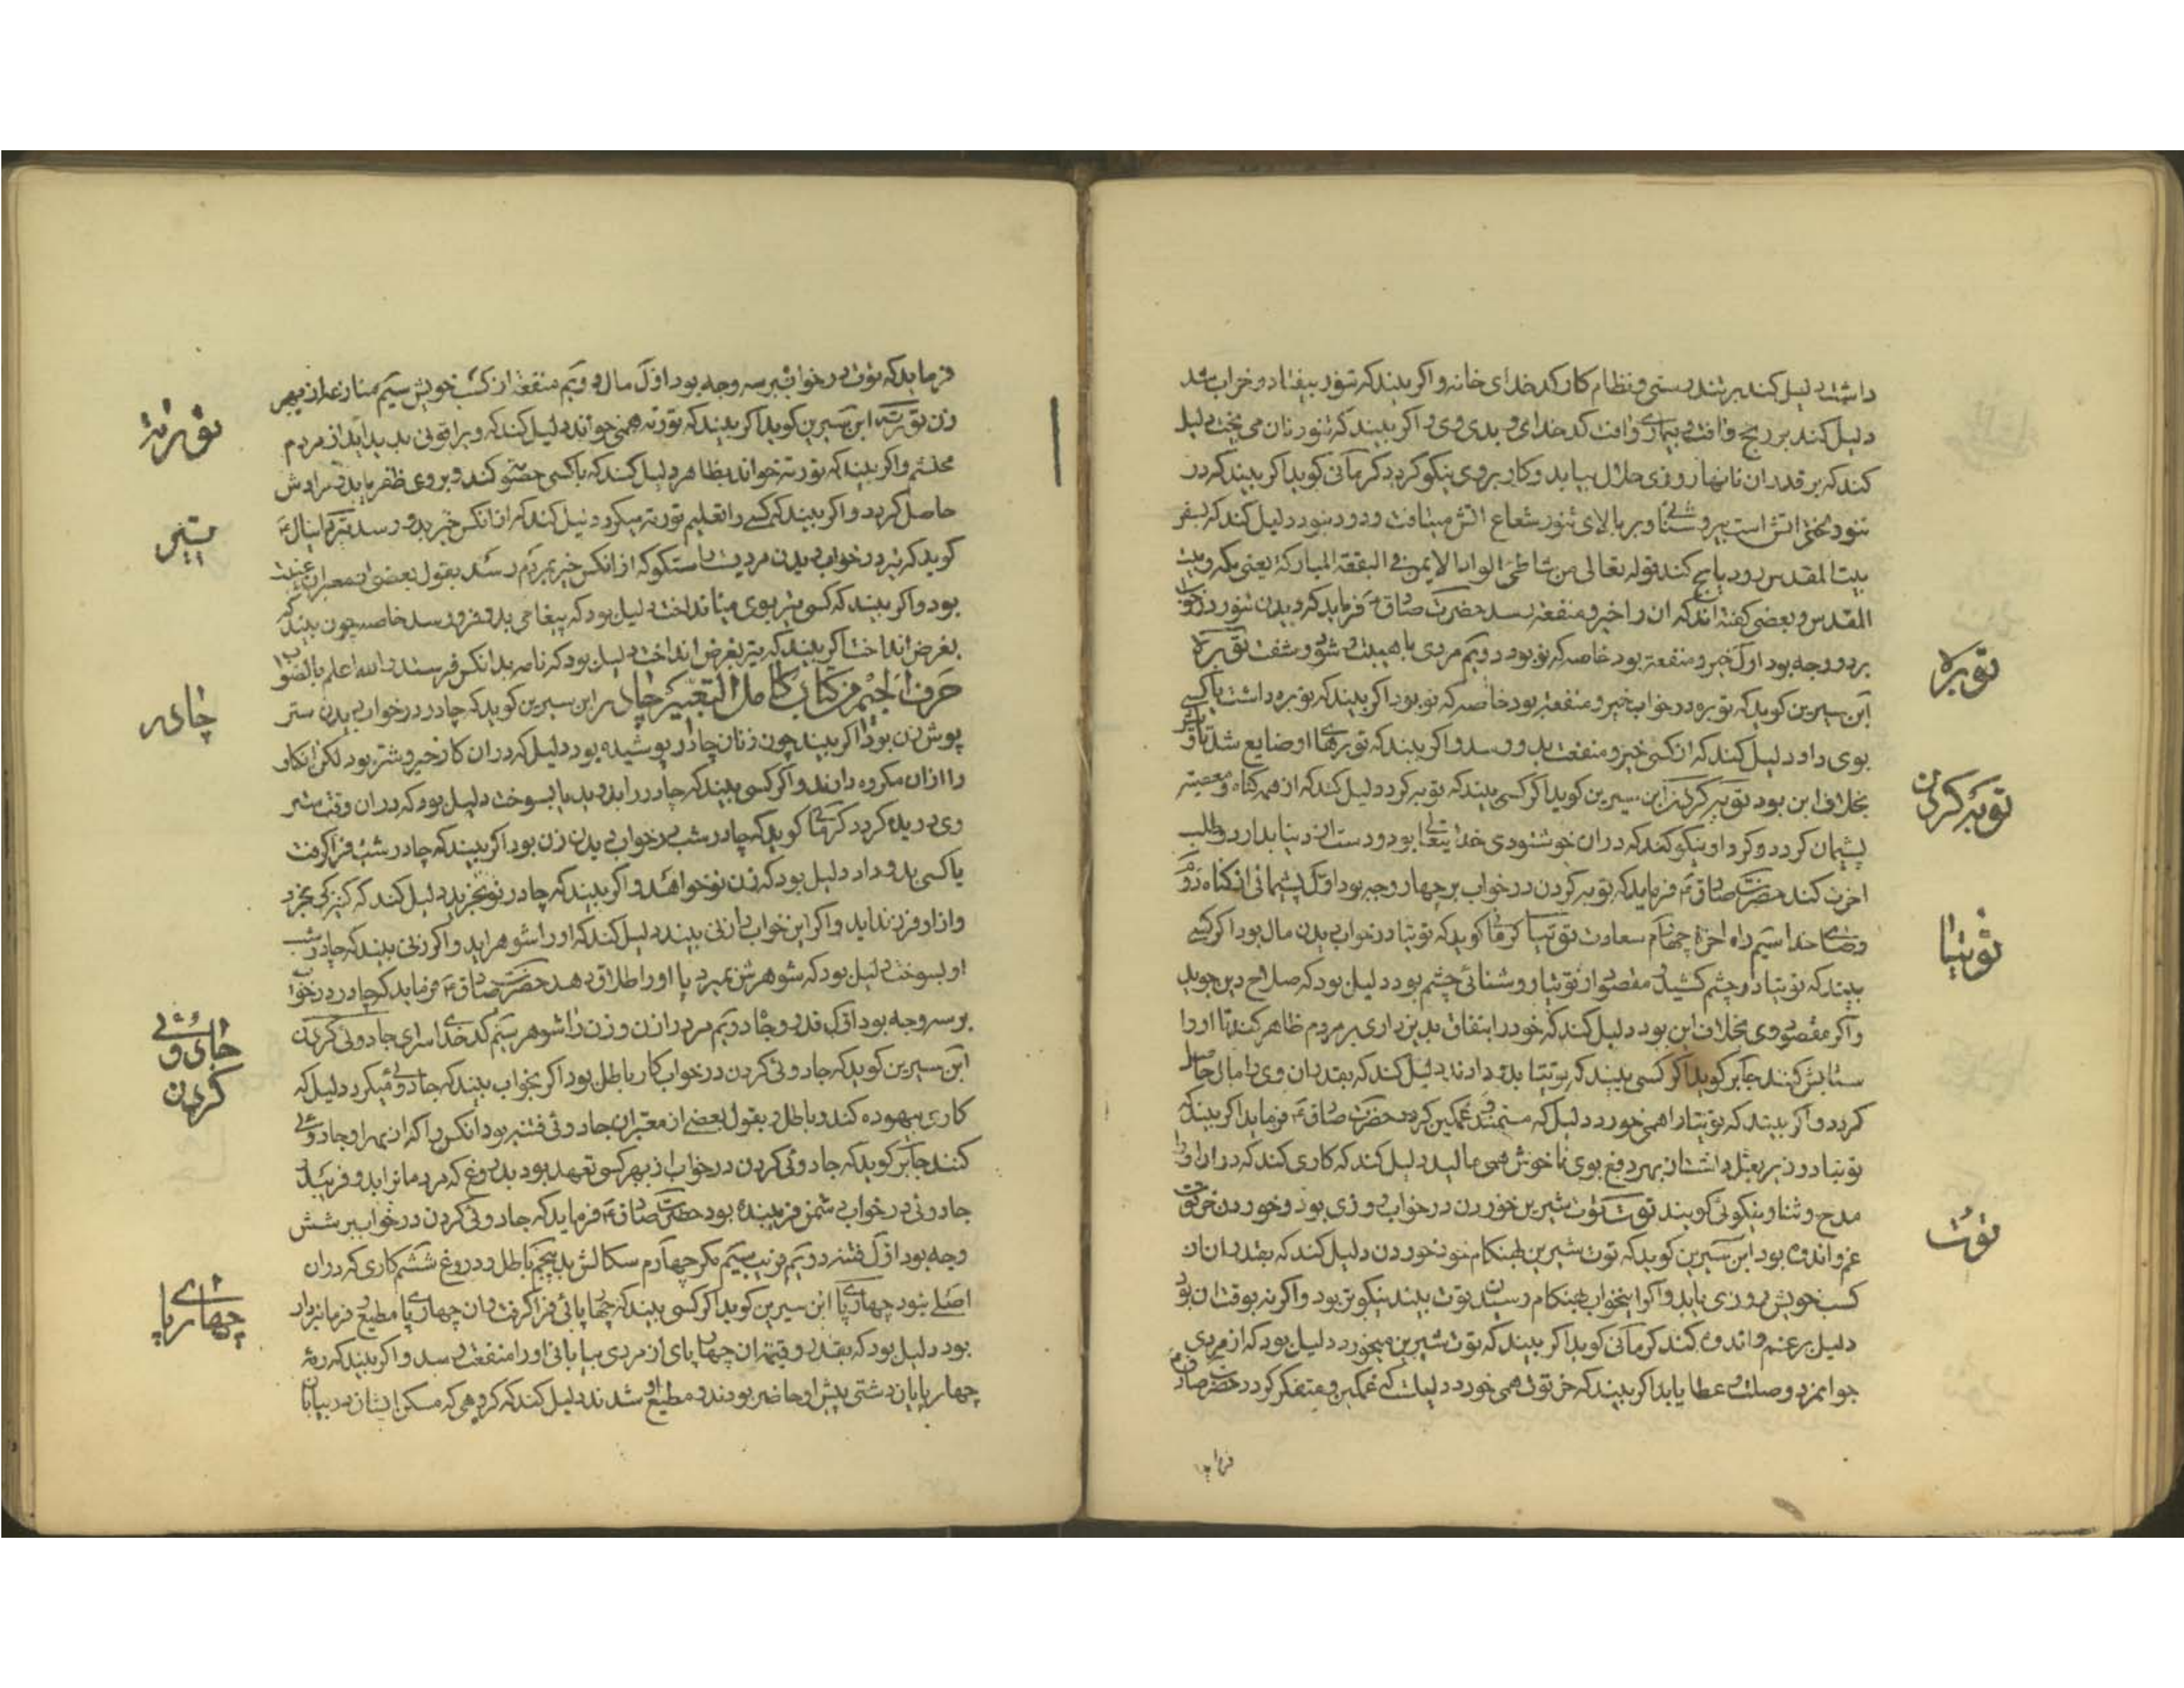 داشت دلیل کند بر تندرستی و نظام کار کدخدای خانه و اکر بیند که تنور بیفتاد و خراب شد
دلیل کند بر رنج و افت و بیماری و افت کدخدای و بدی وی و اکر بیند که تنور نان می پخت دلیل
کند که بر قدر ان نانها روزی حلال بیابد و کار بر وی نیکو کردد کرمانی کوید اکر بیند که در
تنور اتش است بر روشنائی و بر بالای تنور شعاع اتش میتافت و دود نبود دلیل کند که بسفر
بیت المقدس رود یا حج کند قوله تعالی من شاطئ الواد الایمن فی البقعة المبارکة یعنی مکه و بیت
المقدس و بعضی کفته اند که ان را خیر و منفعت رسد حضرت صادق ع فرماید که دیدن تنور در خواب
بر دو وجه بود اول خیر و منفعة بود خاصه که نو بود دویم مردی با هیبت توبره
ابن سیرین کوید که توبره در خواب خیر و منفعت بود خاصه که نو بود اکر بیند که توبره داشت یا کسی
بوی داد دلیل کند که از کسی خیر و منفعت بدو رسد و اکر بیند که توبرهٔ او ضایع شد
بخلاف این بود توبه کردن ابن سیرین کوید اکر کسی بیند که توبه کرد دلیل کند که از همه کناه و معصیة
پشیمان کردد و کردار نیکو کند که دران خوشنودی خدایتعالی بود و دست از دنیا بدارد و طلب
اخرت کند حضرت صادق ع فرماید که توبه کردن در خواب بر چهار وجه بود اول پشیمانی از کناه دوم
رضای خدا سیم راه اخرة چهارم سعادت توتیا کرمانی کوید که توتیا در خواب دیدن مال بود اکر کسی
بیند که توتیا در چشم کشید مقصود او از توتیا روشنائی چشم بود دلیل بود که صلاح دین جوید
و اکر مقصود وی بخلاف این بود دلیل کند که خود را بنفاق بدین داری بر مردم ظاهر کند تا او را
ستایش کنند جابر کوید اکر کسی بیند که توتیا بدو دادند دلیل کند که بقدر ان وی را مال حاصل
کردد و اکر بیند که توتیا را همی خورد دلیل که مستمند و غمکین کردد حضرت صادق ع فرماید اکر بیند که
توتیا در زیر بغل داشت از بهر دفع بوی ناخوش همی مالید دلیل کند که کاری کند که دران او را
مدح و ثنا و نیکوئی کویند توت شیرین خوردن در خواب روزی بود و خوردن خرتوت
غم و اندوه بود ابن سیرین کوید که توت شیرین بهنکام خود خوردن دلیل کند که بقدر ان از
کسب خویش روزی یابد و اکر این خواب بهنکام رسیدن توت بیند نیکوتر بود و اکر نه بوقت ان بود
دلیل بر غم و اندوه کند کرمانی کوید اکر بیند که توت شیرین میخورد دلیل بود که از مردی
جوانمرد وصلت و عطا یابد اکر بیند که خرتوت همی خورد دلیلست که غمکین و متفکر کردد حضرت صادق ع
فرماید
توبره
توبه کردن
توتیا
توت
فرماید که توت در خواب بر سه وجه بود اول مال دویم منفعت از کسب خویش سیم منازعه از بهر
زن توریة ابن سیرین کوید اکر بیند که توریة همی خواند دلیل کند که ویرا قوتی پدید آید از مردم
محتشم و اکر بیند که توریة خواند بظاهر دلیل کند که با کسی خصومت کند و بر وی ظفر یابد و مرادش
حاصل کردد و اکر بیند که کسی را تعلیم توریة میکرد دلیل کند که از انکس خیر بدو رسد تیر دانیال ع
کوید که تیر در خواب دیدن مردیست راستکو که از انکس خیر بمردم رسد بقول بعضی از معبران
بود و اکر بیند که کسی تیر بوی می انداخت دلیل بود که پیغامی بدو فرو رسد خاصه چون بیند که
بغرض انداخت اکر بیند که تیر بغرض انداخت دلیل بود که نامه بدانکس فرستد والله اعلم بالصواب
حرف الجیم من کتاب کامل التعبیر چادر ابن سیرین کوید که چادر در خواب دیدن ستر
پوش زن بود اکر بیند چون زنان چادر پوشیده بود دلیل که دران کار خیر و شر بود لکن انکار
را ازان مکروه دارند و اکر کسی بیند که چادر را بدرید یا بسوخت دلیل بود که دران وقت ستر
وی دریده کردد کرمانی کوید که چادر شب در خواب دیدن زن بود اکر بیند که چادر شب فرا کرفت
یا کسی بدو داد دلیل بود که زن نو خواهد و اکر بیند که چادر نو بخرید دلیل کند که کنیزکی بخرد
و از او فرزند اید و اکر این خواب را زنی بیند دلیل کند که او را شوهر اید و اکر زنی بیند که چادر شب
او بسوخت دلیل بود که شوهرش بمیرد یا او را طلاق دهد حضرت صادق ع فرماید که چادر در خواب
بر سه وجه بود اول قدر و جاه دویم مرد را زن و زن را شوهر سیم کدخدای سرای جادوئی کردن
ابن سیرین کوید که جادوئی کردن در خواب کار باطل بود اکر بخواب بیند که جادوئی میکرد دلیل که
کاری بیهوده کند و باطل و بقول بعضی از معبران جادوئی فتنه بود انکس را که از بهر او جادوئی
کنند جابر کوید که جادوئی کردن در خواب از بهر کسی تعهد بود بدروغ که مردمانرا بدو فریبد
جادوئی در خواب دشمن فریبنده بود حضرت صادق ع فرماید که جادوئی کردن در خواب بر شش
وجه بود اول فتنه دویم فریب سیم مکر چهارم سکالش بد پنجم باطل و دروغ ششم کاری که دران
اصلی نبود چهارپا ابن سیرین کوید اکر کسی بیند که چهارپائی فرا کرفت و ان چهارپا مطیع و فرمانبردار
بود دلیل بود که بقدر و قیمة ان چهارپای از مردی بیابانی او را منفعت رسد و اکر بیند که رمهٔ
چهارپایان دشتی پیش او حاضر بودند و مطیع او شدند دلیل کند که کروهی که مسکن ایشان در بیابان
توریة
تیر
چادر
جادوئی
کردن
چهارپا